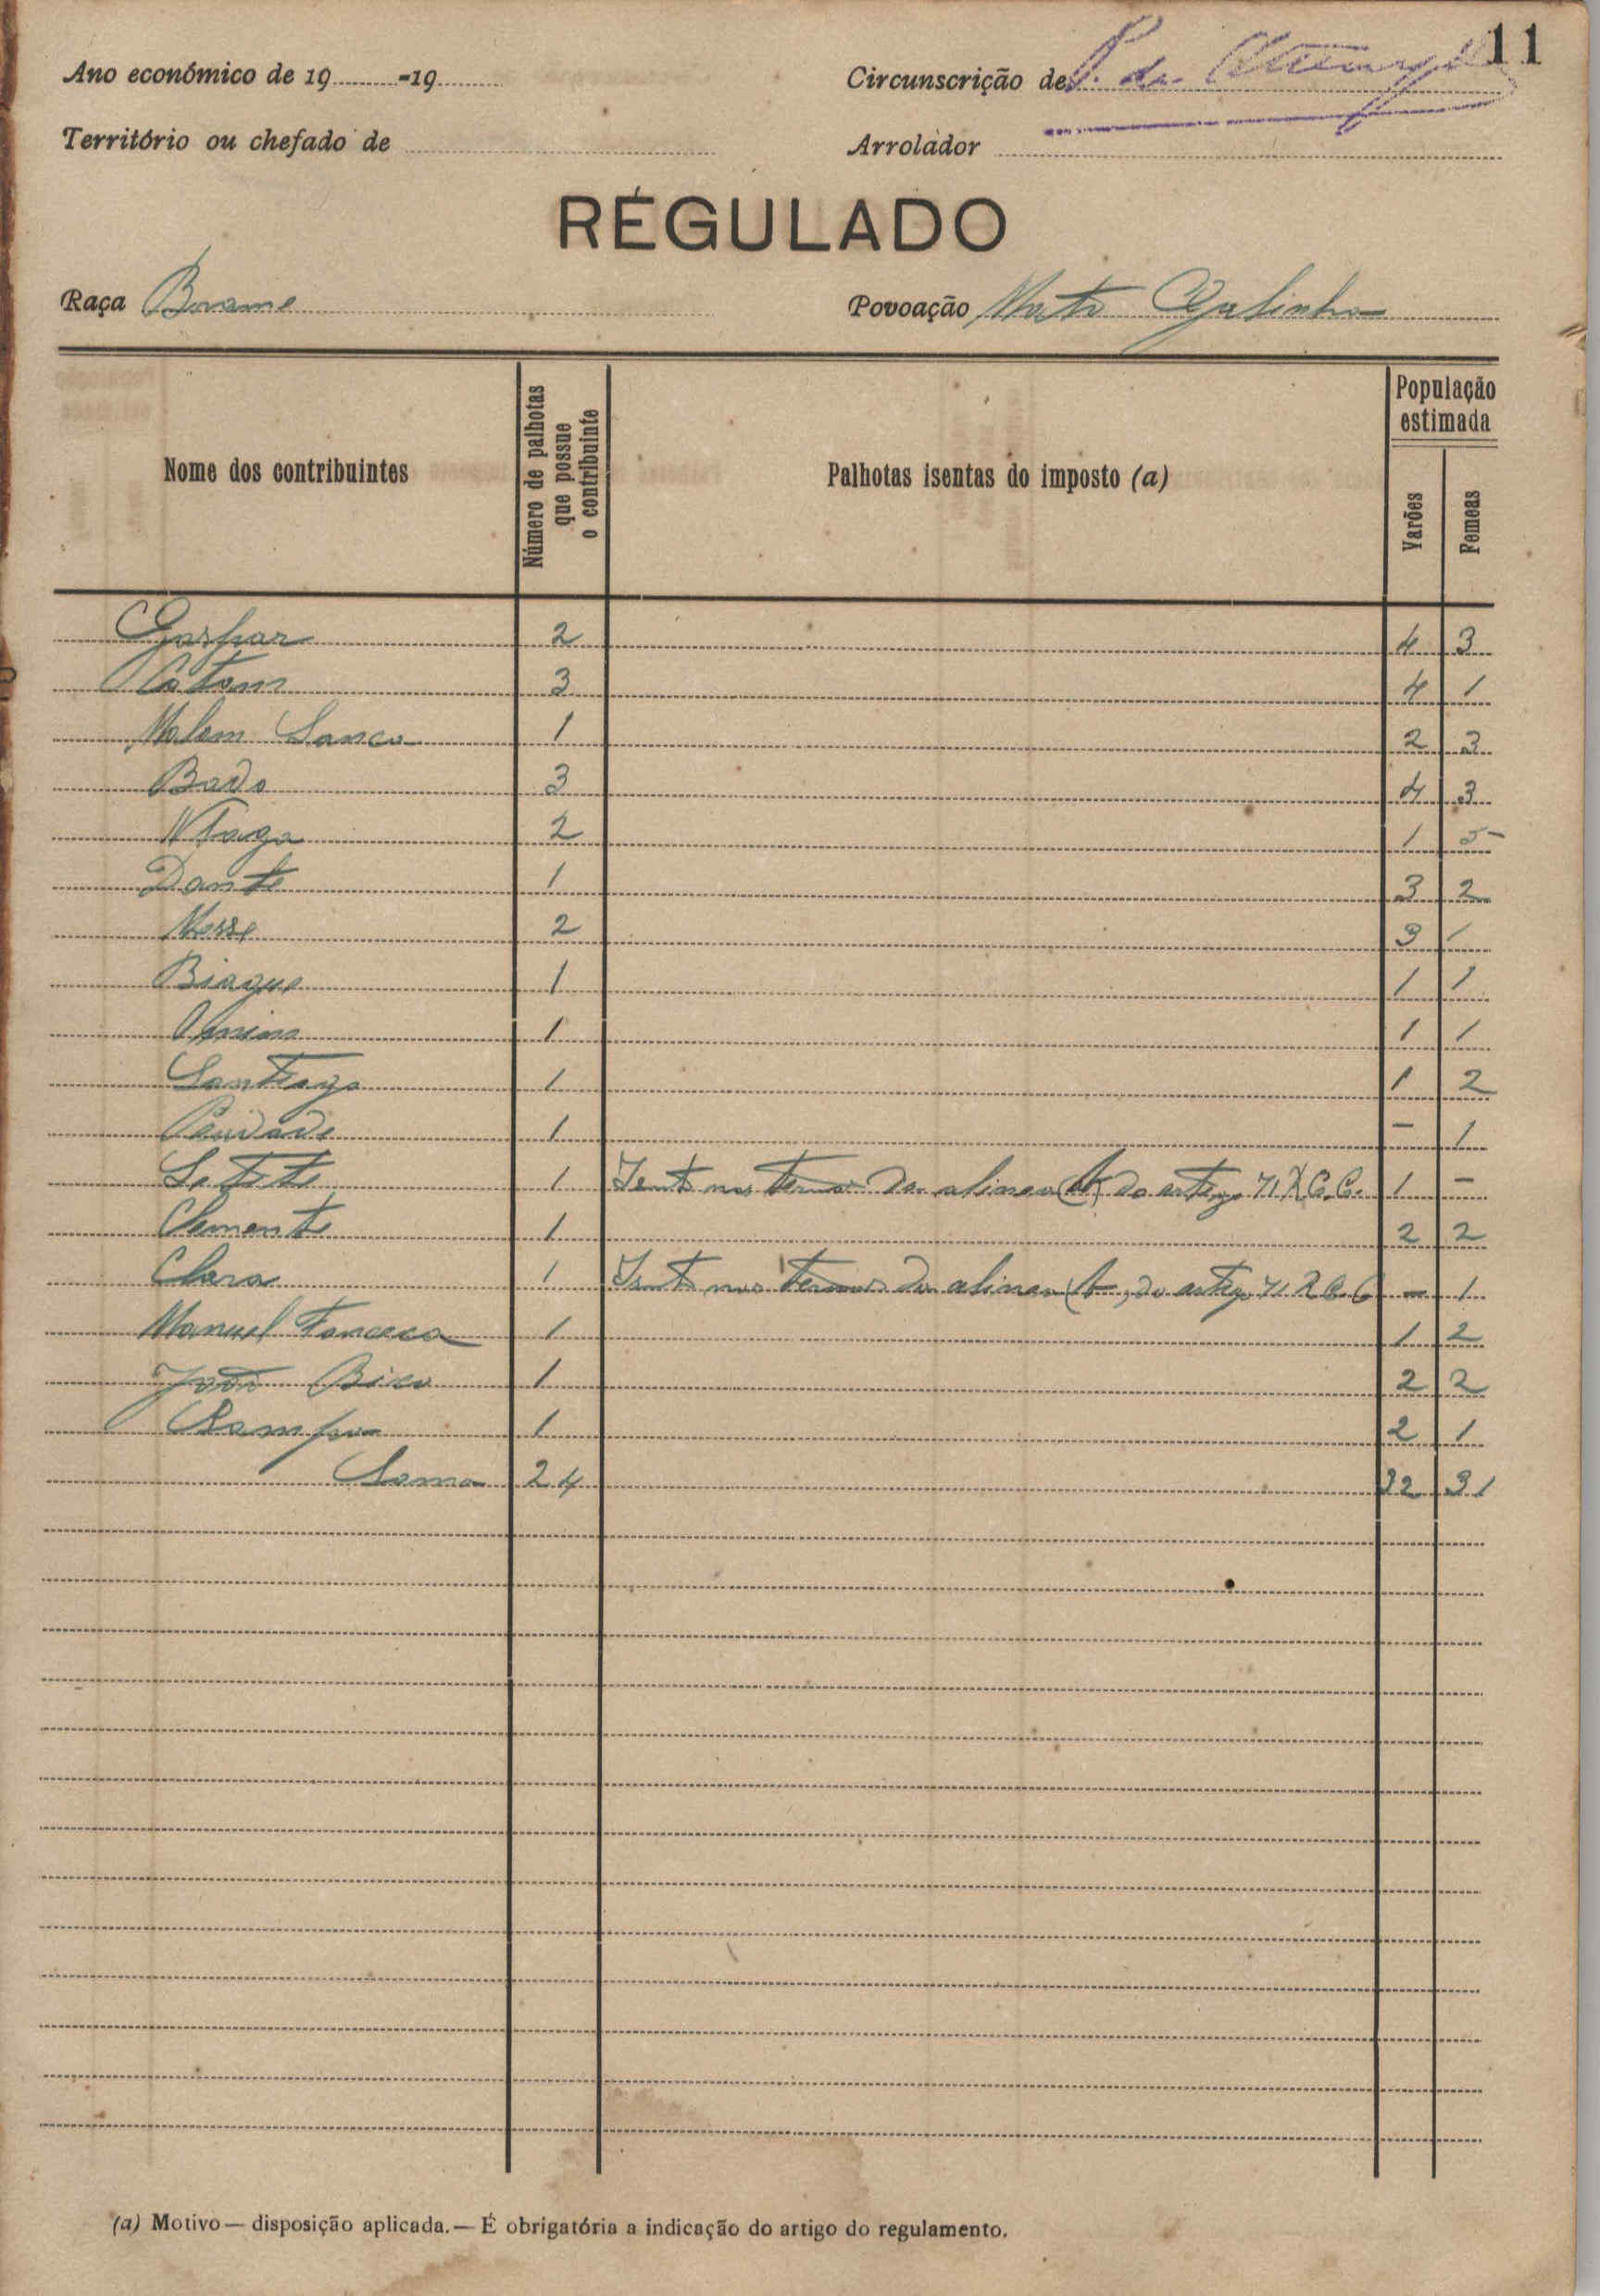 11
Ano económico de 19 -19
Circunscrição de
Território ou chefado de
Arrolador
RÉGULADO
Raça Brame
Povoação Mato Galinha
Nome dos contribuintes
Número de palhotas que possue o contribuinte
Palhotas isentas do imposto (a)
População estimada
Varões
Femeas
Gaspar 2 4 3
3 4 1
Malam Sanca 1 2 3
Bado 3 4 3
Ntaga 2 1 5
Dante 1 3 2
2 3 1
Biague 1 1 1
1 1 1
Santiago 1 1 2
1 - 1
1 nos termos da alinea do artigo 71 1 -
Clemente 1 2 2
Clara 1 nos termos da alinea do artigo 71 - 1
Manuel Fonceca 1 1 2
João Bico 1 2 2
Sampa 1 2 1
Soma 24 32 31
(a) Motivo — disposição aplicada. — É obrigatória a indicação do artigo do regulamento.